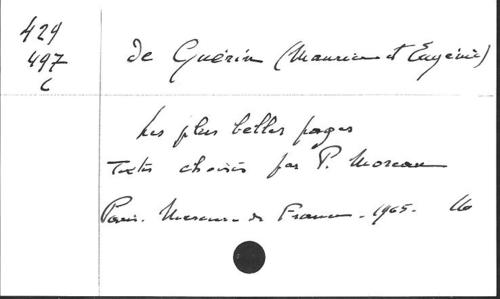 429
497
C
de Guérin (Maurice et Eugénie)
Les plus belles pages
Textes choisis par P. Moreau
Paris. Mercure de France - 1965.